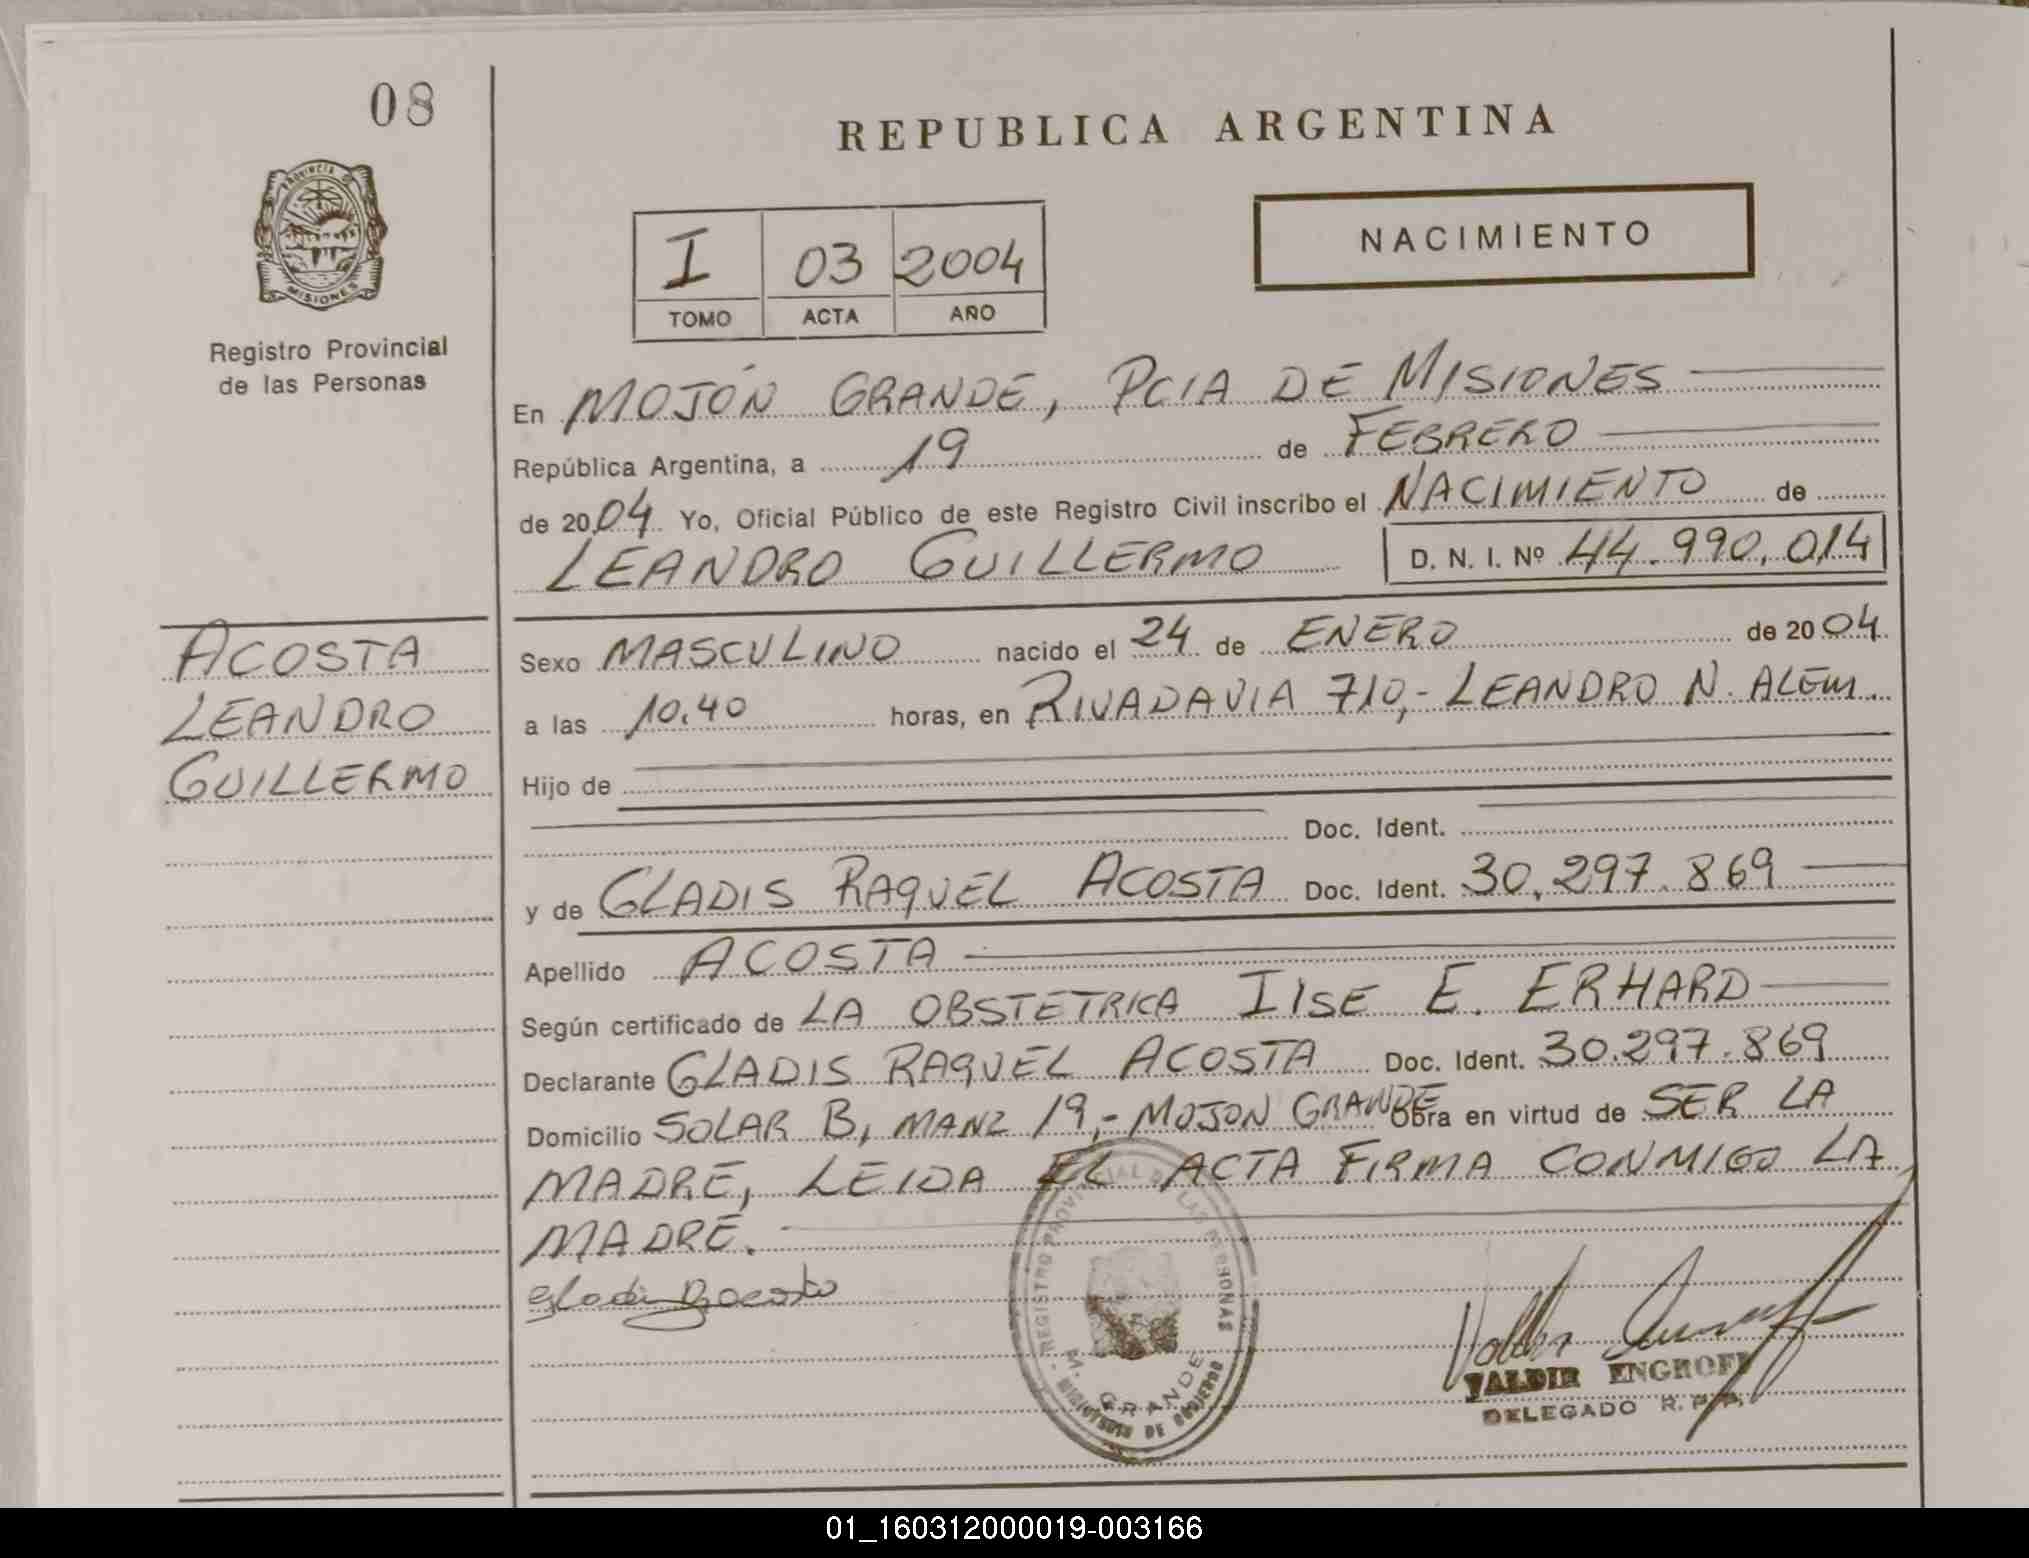 08
REPUBLICA ARGENTINA
PROVINCIA DE
MISIONES
Registro Provincial
de las Personas
I 03 2004
TOMO ACTA AÑO
NACIMIENTO
En MOJÓN GRANDE, PCIA DE MISIONES
República Argentina, a 19 de FEBRERO
de 2004 Yo, Oficial Público de este Registro Civil inscribo el NACIMIENTO de
LEANDRO GUILLERMO D. N. I. Nº 44.990.014
ACOSTA
LEANDRO
GUILLERMO
Sexo MASCULINO nacido el 24 de ENERO de 2004
a las 10.40 horas, en RIVADAVIA 710,- LEANDRO N. ALEM.
Hijo de
Doc. Ident.
y de GLADIS RAQUEL ACOSTA Doc. Ident. 30.297.869
Apellido ACOSTA
Según certificado de LA OBSTETRICA ILSE E. ERHARD
Declarante GLADIS RAQUEL ACOSTA Doc. Ident. 30.297.869
Domicilio SOLAR B, MANZ 19,- MOJON GRANDE Obra en virtud de SER LA
MADRE, LEIDA EL ACTA FIRMA CONMIGO LA
MADRE.
Gladis R Acosta
REGISTRO PROVINCIAL DE LAS PERSONAS
M. GRANDE
MINISTERIO DE GOBIERNO
VALDIR ENGROFF
DELEGADO R. P. P.
01_160312000019-003166